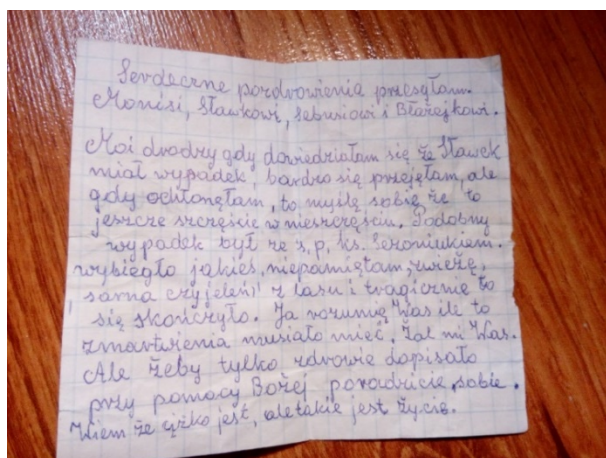 Serdeczne pozdrowienia przesyłam.
Monisi, Sławkowi, Sebusiowi i Błażejkowi.
Moi drodzy gdy dowiedziałam się że Sławek
miał wypadek, bardzo się przejęłam, ale
gdy ochłonęłam, to myślę sobie że to
jeszcze szczęście w nieszczęściu. Podobny
wypadek był ze ś.p. ks. Seroniukiem.
wybiegło jakieś, niepamiętam, zwieżę,
sarna czy jeleń, z lasu i tragicznie to
się skończyło. Ja rozumię Was ile to
zmartwienia musiało mieć. Żal mi Was.
Ale żeby tylko zdrowie dopisało
przy pomocy Bożej poradzicie sobie.
Wiem że ciężko jest, ale takie jest życie.